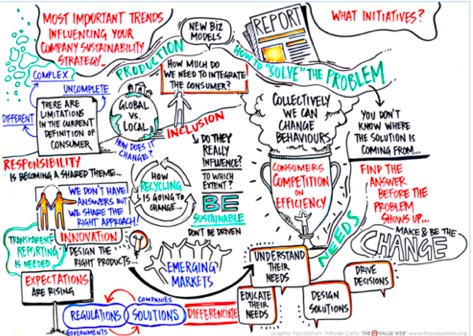 MOST IMPORTANT TRENDS
INFLUENCING YOUR
COMPANY SUSTAINABILITY
STRATEGY...
NEW BIZ
MODELS
REPORT
WHAT INITIATIVES?
PRODUCTION
HOW MUCH DO
WE NEED TO INTEGRATE
THE CONSUMER?
HOW TO "SOLVE" THE PROBLEM
COMPLEX
UNCOMPLETE
DIFFERENT
THERE ARE
LIMITATIONS
IN THE CURRENT
DEFINITION OF
CONSUMER
GLOBAL
VS.
LOCAL
HOW DOES IT
CHANGE?
INCLUSION
COLLECTIVELY
WE CAN
CHANGE
BEHAVIOURS
YOU DON'T
KNOW WHERE
THE SOLUTION IS
COMING FROM...
RESPONSIBILITY
IS BECOMING A SHARED THEME...
DO THEY
REALLY
INFLUENCE?
TO WHICH
EXTENT?
HOW
RECYCLING
IS GOING TO
CHANGE...
CONSUMERS
COMPETITION
ON
EFFICIENCY
FIND THE
ANSWER
BEFORE THE
PROBLEM
SHOWS UP...
WE DON'T HAVE
ANSWERS BUT
WE SHARE THE
RIGHT APPROACH!
BE
SUSTAINABLE
DON'T BE DRIVEN
MAKE & BE THE
CHANGE
TRANSPARENT
REPORTING
IS NEEDED
INNOVATION
DESIGN THE
RIGHT PRODUCTS...
EMERGING
MARKETS
NEEDS
UNDERSTAND
THEIR NEEDS
EXPECTATIONS
ARE RISING
EDUCATE
THEIR
NEEDS
DESIGN
SOLUTIONS
DRIVE
DECISIONS
COMPANIES
REGULATIONS
SOLUTIONS
DIFFERENCIATE
GOVERNMENTS
Graphic Facilitation: Alfredo Carlo THE VALUE WEB www.thevalueweb.org